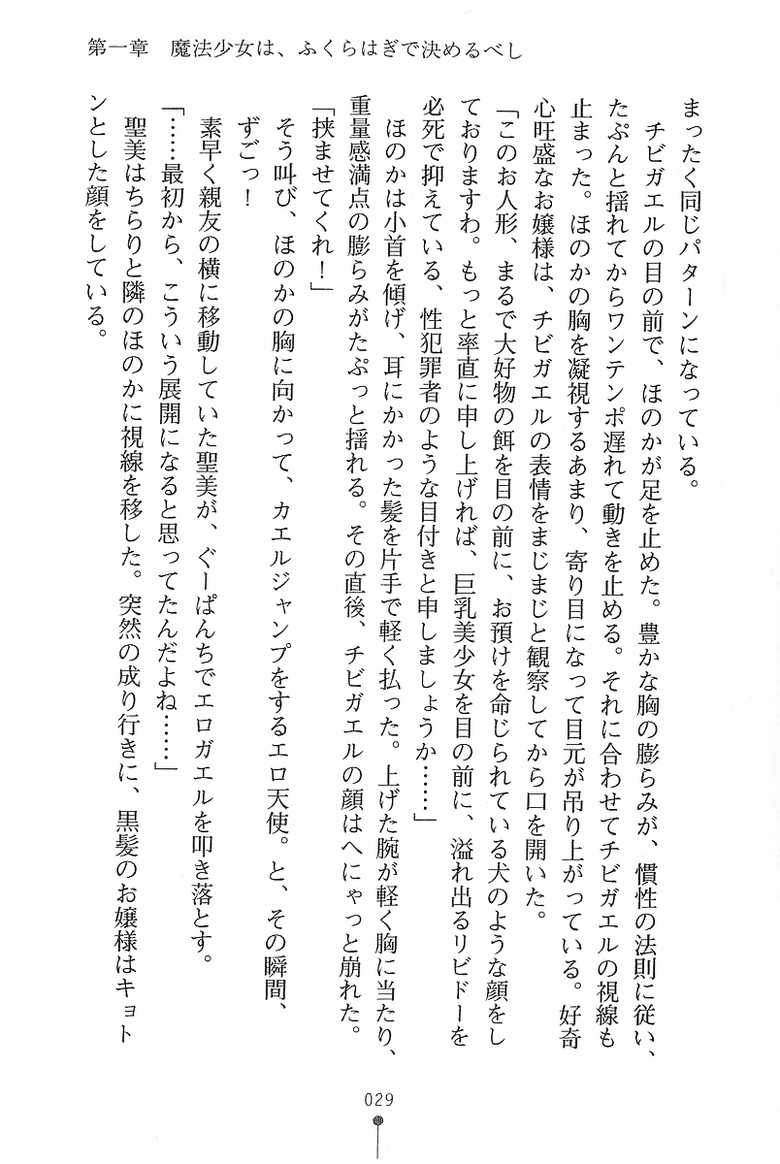 第一章　魔法少女は、ふくらはぎで決めるべし
まったく同じパターンになっている。
　チビガエルの目の前で、ほのかが足を止めた。豊かな胸の膨らみが、慣性の法則に従い、
たぷんと揺れてからワンテンポ遅れて動きを止める。それに合わせてチビガエルの視線も
止まった。ほのかの胸を凝視するあまり、寄り目になって目元が吊り上がっている。好奇
心旺盛なお嬢様は、チビガエルの表情をまじまじと観察してから口を開いた。
「このお人形、まるで大好物の餌を目の前に、お預けを命じられている犬のような顔をし
ておりますわ。もっと率直に申し上げれば、巨乳美少女を目の前に、溢れ出るリビドーを
必死で抑えている、性犯罪者のような目付きと申しましょうか……」
　ほのかは小首を傾げ、耳にかかった髪を片手で軽く払った。上げた腕が軽く胸に当たり、
重量感満点の膨らみがたぷっと揺れる。その直後、チビガエルの顔はへにゃっと崩れた。
「挟ませてくれ！」
　そう叫び、ほのかの胸に向かって、カエルジャンプをするエロ天使。と、その瞬間、
ずごっ！
　素早く親友の横に移動していた聖美が、ぐーぱんちでエロガエルを叩き落とす。
「……最初から、こういう展開になると思ってたんだよね……」
　聖美はちらりと隣のほのかに視線を移した。突然の成り行きに、黒髪のお嬢様はキョト
ンとした顔をしている。
029